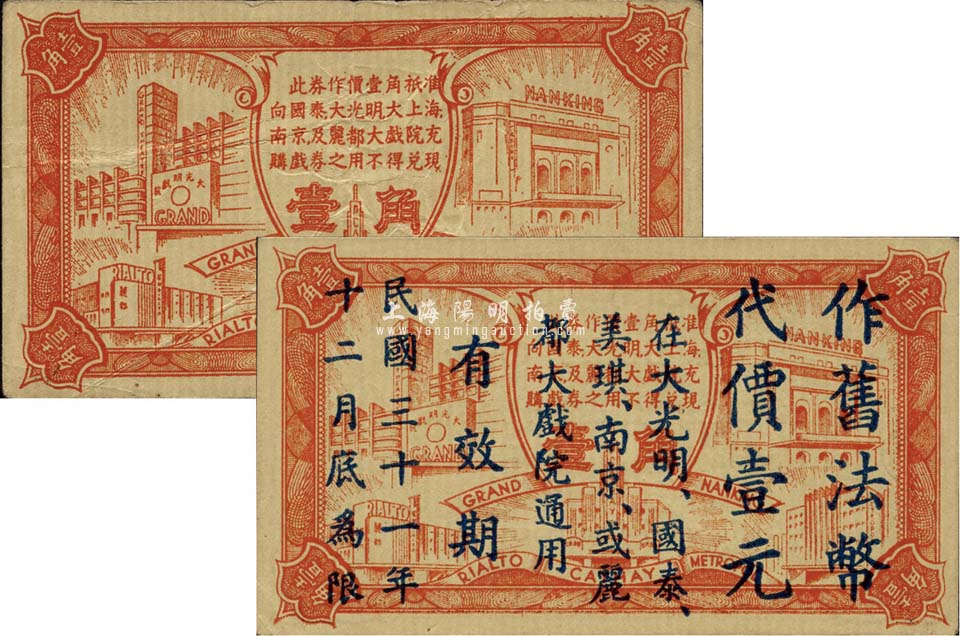 壹角
壹角
此券作價壹角祇准
向國泰大光明大上海
南京及麗都大戲院充
購戲券之用不得兌現
壹角
NANKING
大光明戲院
GRAND
GRAN
RIALTO
麗都
RIALTO
壹角
上海陽明拍賣
www.yangmingauction.com
壹角
壹角
作舊法幣
代價壹元
在大光明、國泰、
美琪、南京、或麗
都大戲院通用
有效期
民國三十一年
十二月底為限
NANKING
GRAND
GRAND
NANK
RIALTO
RIALTO
CATHAY
METRO
壹角
壹角